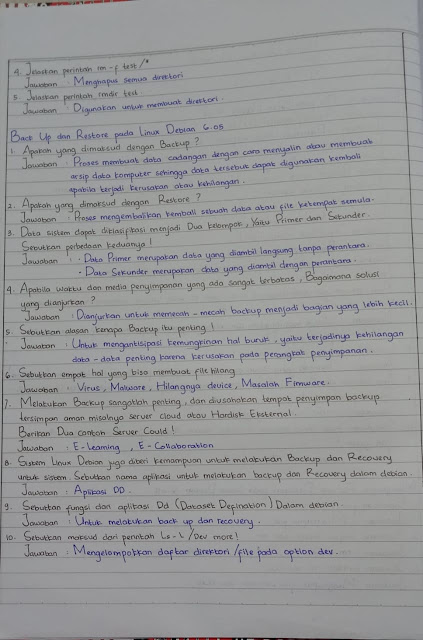 4. Jelaskan perintah rm -f test /*
Jawaban : Menghapus semua direktori
5. Jelaskan perintah rmdir test.
Jawaban : Digunakan untuk membuat direktori.
Back Up dan Restore pada Linux Debian 6.05
1. Apakah yang dimaksud dengan Backup ?
Jawaban : Proses membuat data cadangan dengan cara menyalin atau membuat
arsip data komputer sehingga data tersebut dapat digunakan kembali
apabila terjadi kerusakan atau kehilangan.
2. Apakah yang dimaksud dengan Restore ?
Jawaban : Proses mengembalikan kembali sebuah data atau file ketempat semula.
3. Data sistem dapat diklasifikasi menjadi Dua kelompok, Yaitu Primer dan Sekunder.
Sebutkan perbedaan keduanya !
Jawaban : - Data Primer merupakan data yang diambil langsung tanpa perantara.
- Data Sekunder merupakan data yang diambil dengan perantara.
4. Apabila waktu dan media penyimpanan yang ada sangat terbatas, Bagaimana solusi
yang dianjurkan ?
Jawaban : Dianjurkan untuk memecah - mecah backup menjadi bagian yang lebih kecil.
5. Sebutkan alasan kenapa Backup itu penting !
Jawaban : Untuk mengantisipasi kemungkinan hal buruk, yaitu terjadinya kehilangan
data - data penting karena kerusakan pada perangkat penyimpanan.
6. Sebutkan empat hal yang bisa membuat file hilang
Jawaban : Virus, Malware, Hilangnya device, Masalah Firmware.
7. Melakukan Backup sangatlah penting, dan diusahakan tempat penyimpan backup
tersimpan aman misalnya server cloud atau Hardisk Eksternal.
Berikan Dua contoh Server Could !
Jawaban : E-Learning, E-Collaboration
8. Sistem Linux Debian juga diberi kemampuan untuk melakukan Backup dan Recovery
untuk sistem. Sebutkan nama aplikasi untuk melakukan backup dan Recovery dalam debian.
Jawaban : Aplikasi DD.
9. Sebutkan fungsi dari aplikasi Dd (Dataset Defination) Dalam debian
Jawaban : Untuk melakukan back up dan recovery.
10. Sebutkan maksud dari perintah Ls -L /Dev more!
Jawaban : Mengelompokkan daptar direktori /file pada option dev.